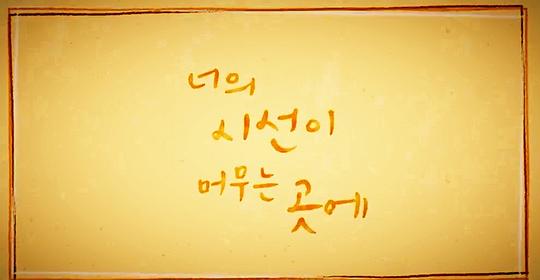 너의
시선이
머무는 곳에